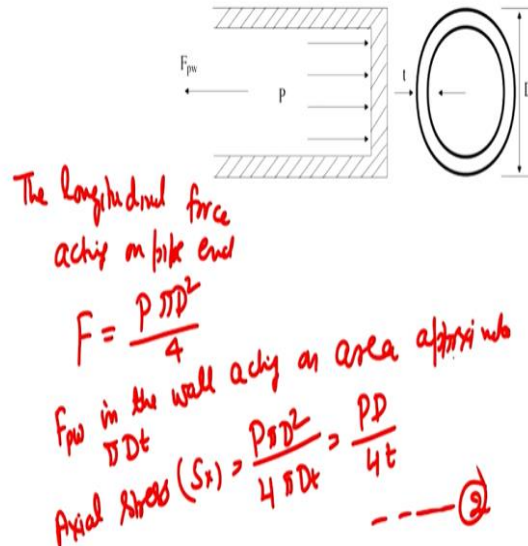 F_pw
P
t
D
The longitudinal force
acting on pipe end
F = PπD²/4
F_pw in the wall acting on area approximate
πDt
Axial stress (Sx) = PπD²/4πDt = PD/4t
----②